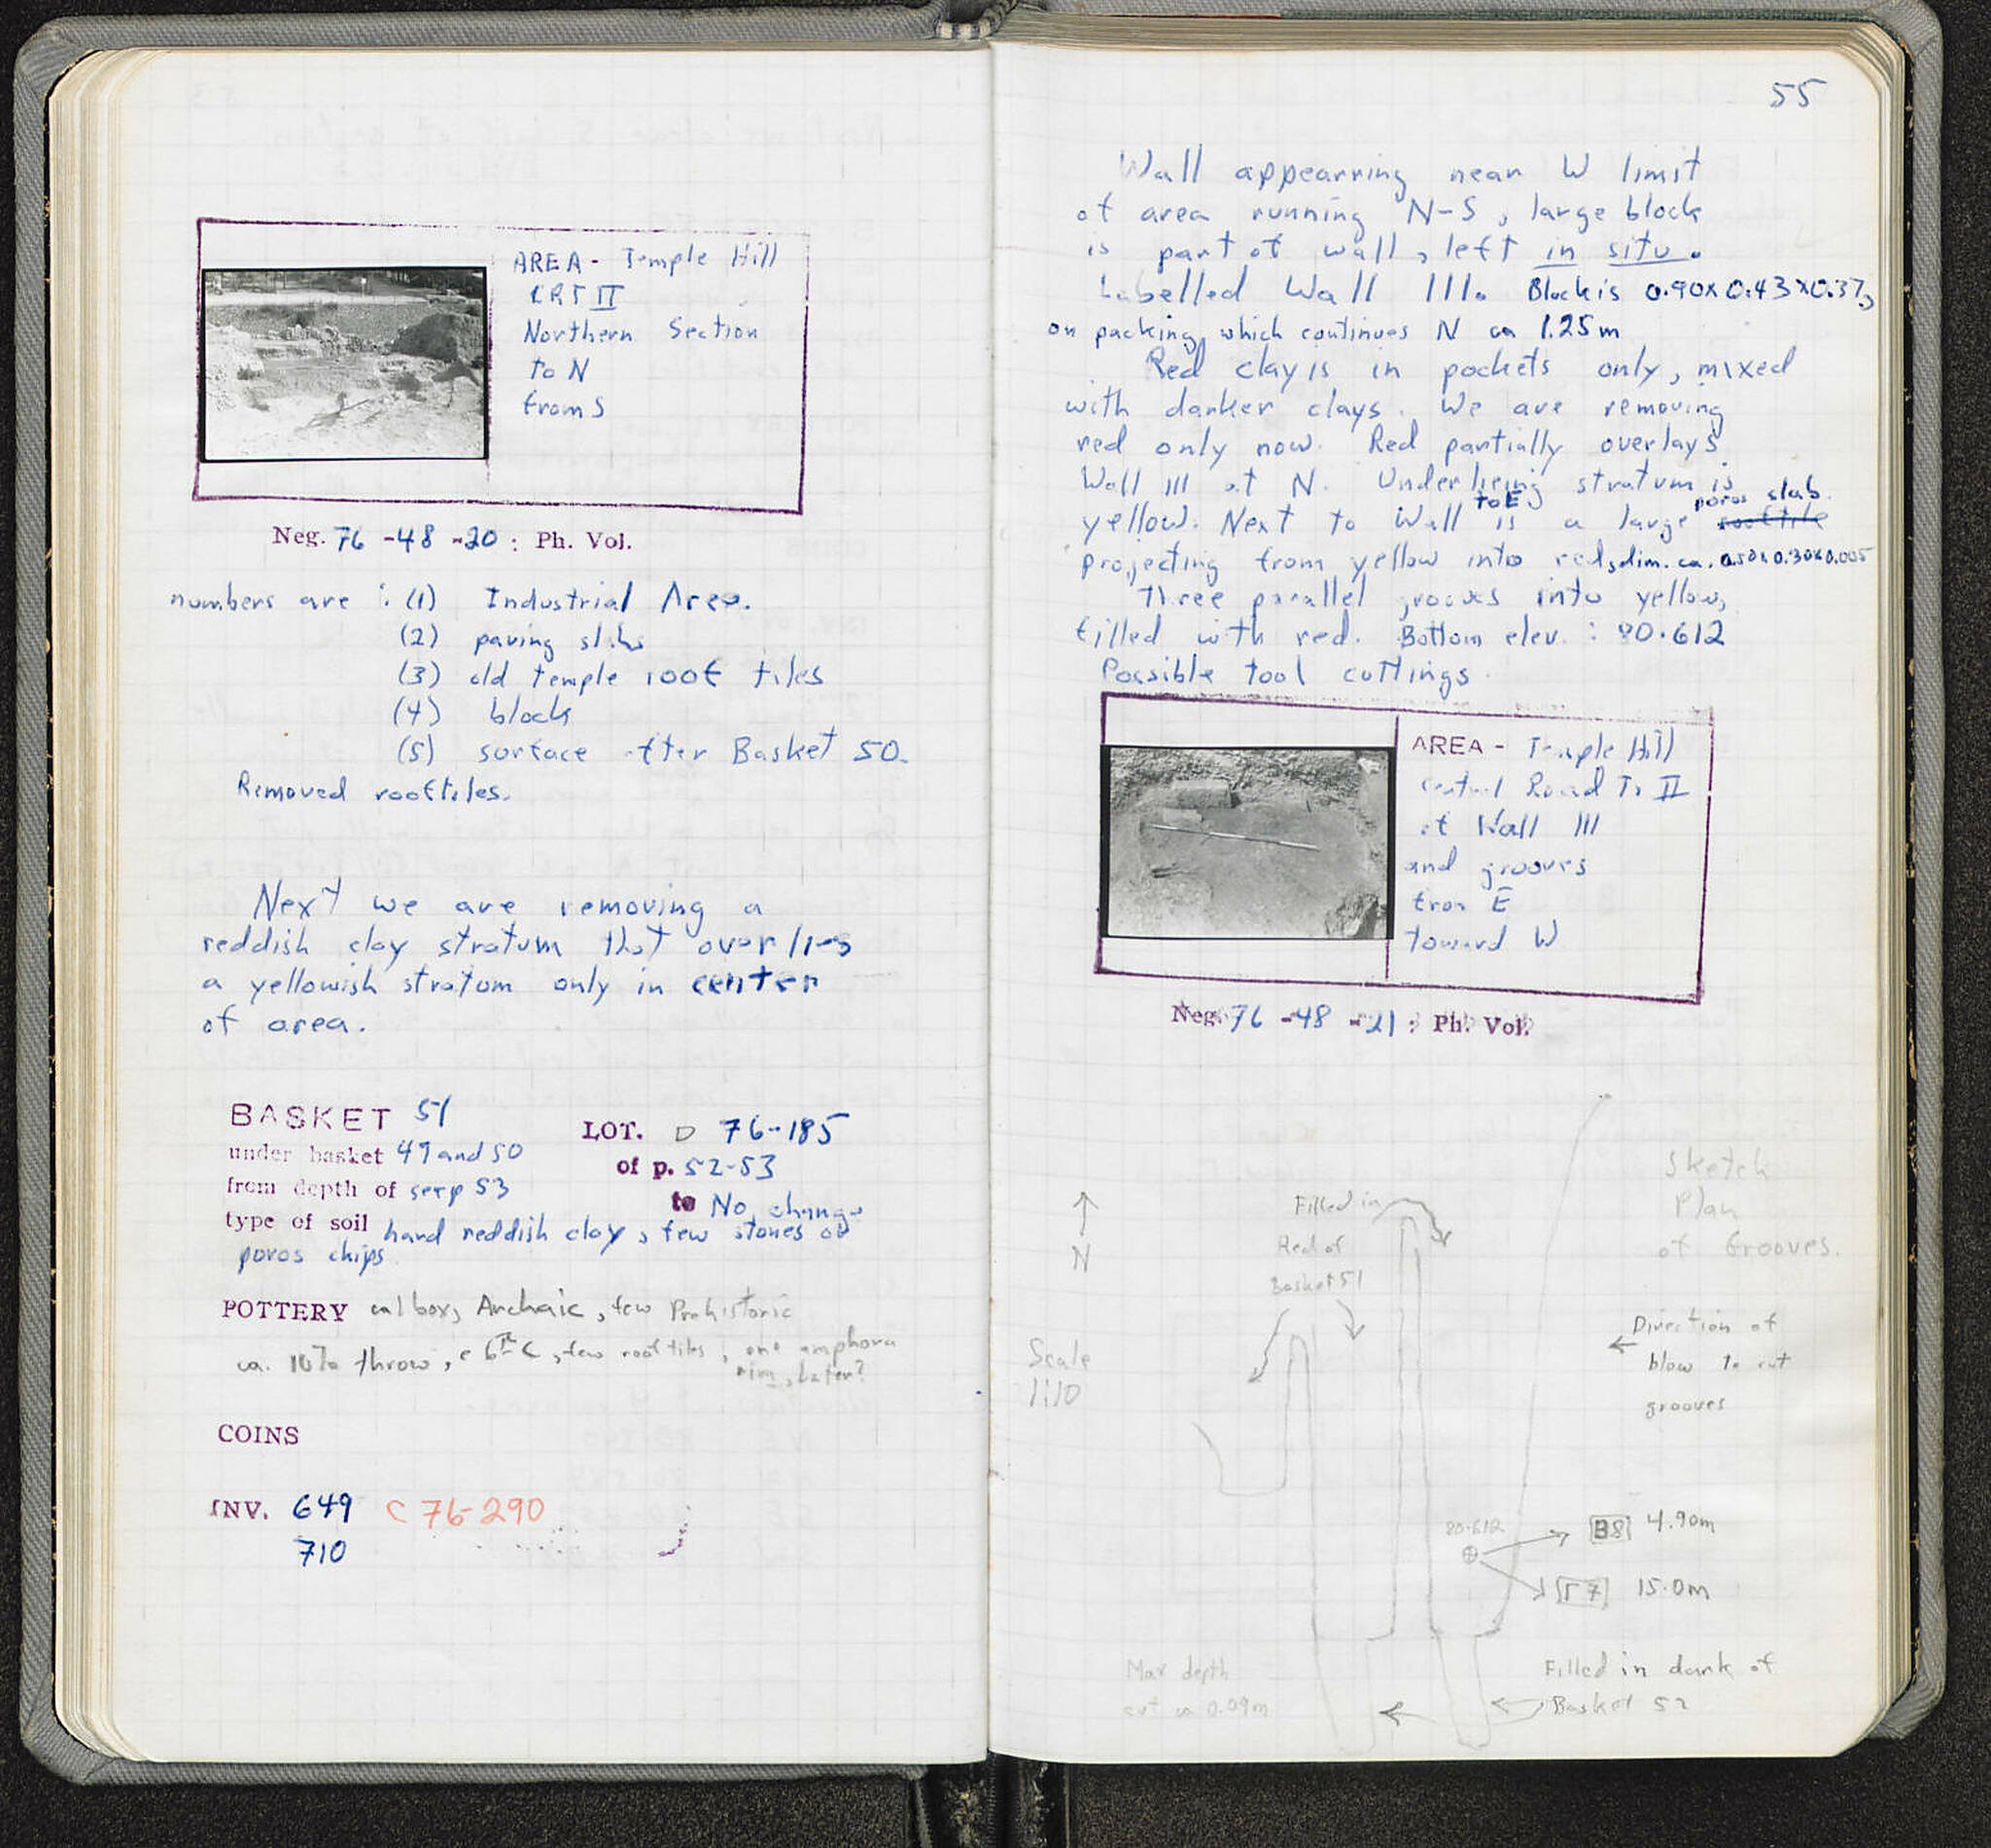 AREA - Temple Hill
CRT II
Northern Section
to N
from S
Neg. 76 - 48 - 20 : Ph. Vol.
numbers are : (1) Industrial Area.
(2) paving slabs
(3) old temple roof tiles
(4) blocks
(5) surface after Basket 50.
Removed rooftiles.
Next we are removing a
reddish clay stratum that overlies
a yellowish stratum only in center
of area.
BASKET 51
LOT. D 76-185
under basket 49 and 50
of p. 52-53
from depth of see p 53
to No change
type of soil hard reddish clay, few stones or
poros chips
POTTERY box, Archaic, few Prehistoric
ca. 10% throw, e 6th C, few roof tiles, one amphora
rim, Later?
COINS
INV. 649 C 76-290
710
55
Wall appearring near W limit
of area running N-S, large block
is part of wall, left in situ.
Labelled Wall III. Block is 0.90x0.43x0.37,
on packing, which continues N ca 1.25m
Red clay is in pockets only, mixed
with darker clays. We are removing
red only now. Red partially overlays
Wall III at N. Underlieing stratum is
yellow. Next to Wall to E is a large poros slab. rooftile
projecting from yellow into red, dim. ca. 0.50x0.30x0.005
Three parallel grooves into yellow,
filled with red. Bottom elev. : 80.612
Possible tool cuttings.
AREA - Temple Hill
Central Road Tr II
at Wall III
and grooves
from E
toward W
Neg. 76 - 48 - 21 : Ph. Vol.
Sketch
Plan
of Grooves.
N
Filled in
Red of
Basket 51
Scale
1:10
Direction of
blow to cut
grooves
80.612
B8 4.90m
Γ7 15.0m
Max depth
cut ca 0.09m
Filled in dark of
Basket 52